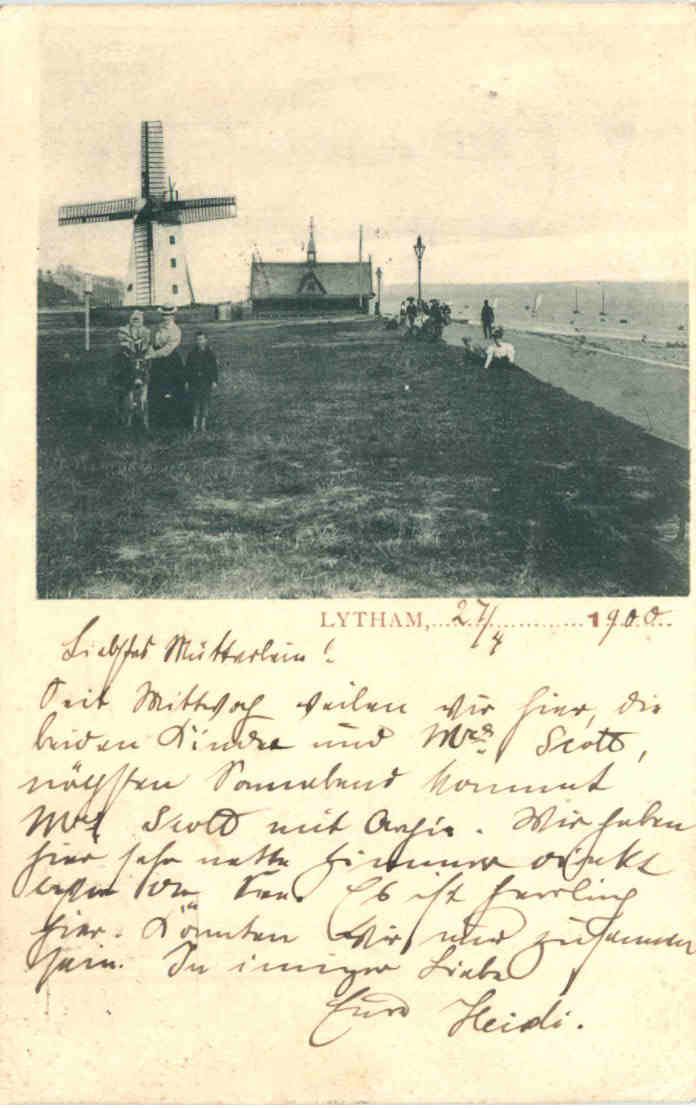 LYTHAM, 27/4 1900.
Liebstes Mütterlein!
Seit Mittwoch weilen wir hier, die
beiden Kinder und Mrs Scott,
nächsten Sonnabend kommt
Mr Scott mit Archie. Wir haben
hier sehr nette Zimmer direkt
an der See. Es ist herrlich
hier. Könnten wir nur zusammen
sein. In inniger Liebe
Eure Heidi.